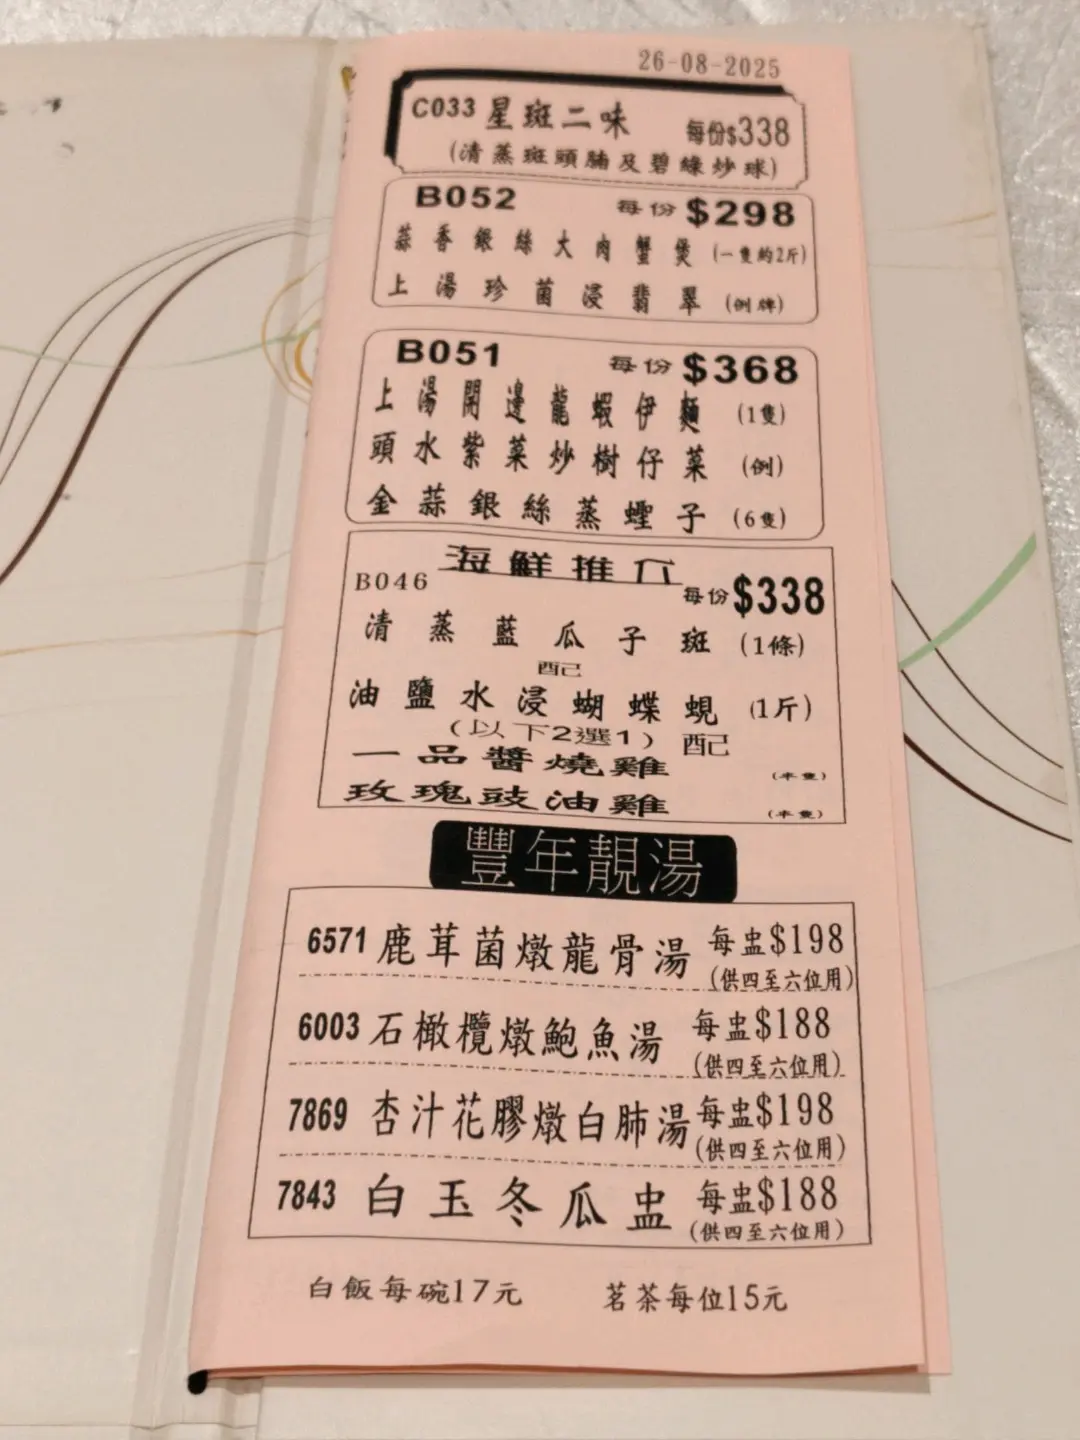 26-08-2025
C033 星斑二味 每份$338
(清蒸斑頭腩及碧綠炒球)
B052 每份 $298
蒜香銀絲大肉蟹煲 (一隻約2斤)
上湯珍菌浸翡翠 (例牌)
B051 每份 $368
上湯開邊龍蝦伊麵 (1隻)
頭水紫菜炒樹仔菜 (例)
金蒜銀絲蒸蟶子 (6隻)
海鮮推介
B046 每份 $338
清蒸藍瓜子斑 (1條)
配
油鹽水浸蝴蝶蜆 (1斤)
(以下2選1) 配
一品醬燒雞 (半隻)
玫瑰豉油雞 (半隻)
豐年靚湯
6571 鹿茸菌燉龍骨湯 每盅$198
(供四至六位用)
6003 石橄欖燉鮑魚湯 每盅$188
(供四至六位用)
7869 杏汁花膠燉白肺湯 每盅$198
(供四至六位用)
7843 白玉冬瓜盅 每盅$188
(供四至六位用)
白飯每碗17元 茗茶每位15元